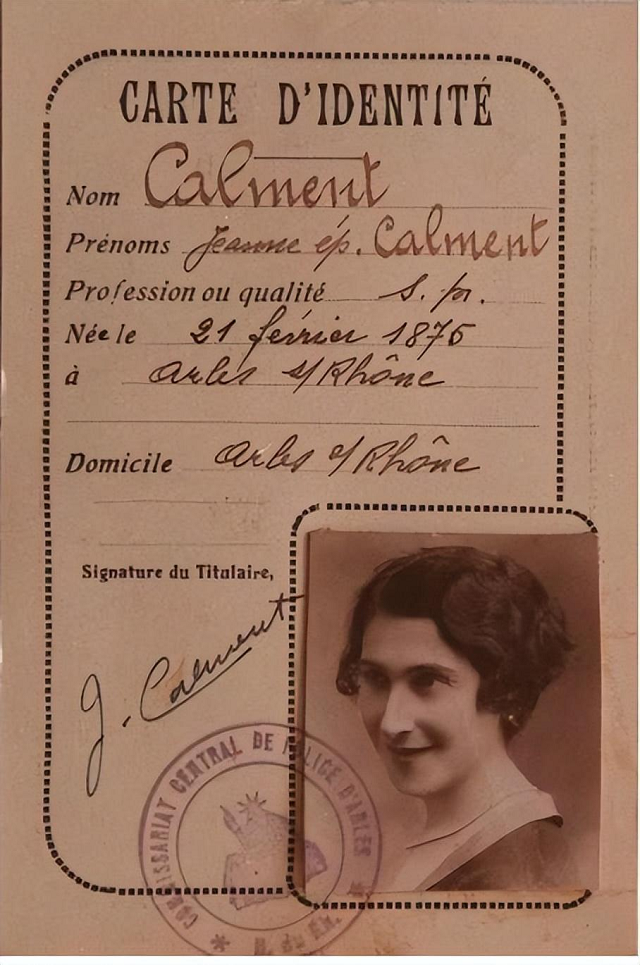 CARTE D'IDENTITÉ
Nom Calment
Prénoms Jeanne ép. Calment
Profession ou qualité s. pr.
Née le 21 février 1875
à Arles s/Rhône
Domicile Arles s/Rhône
Signature du Titulaire,
J. Calment
COMMISSARIAT CENTRAL DE POLICE D'ARLES